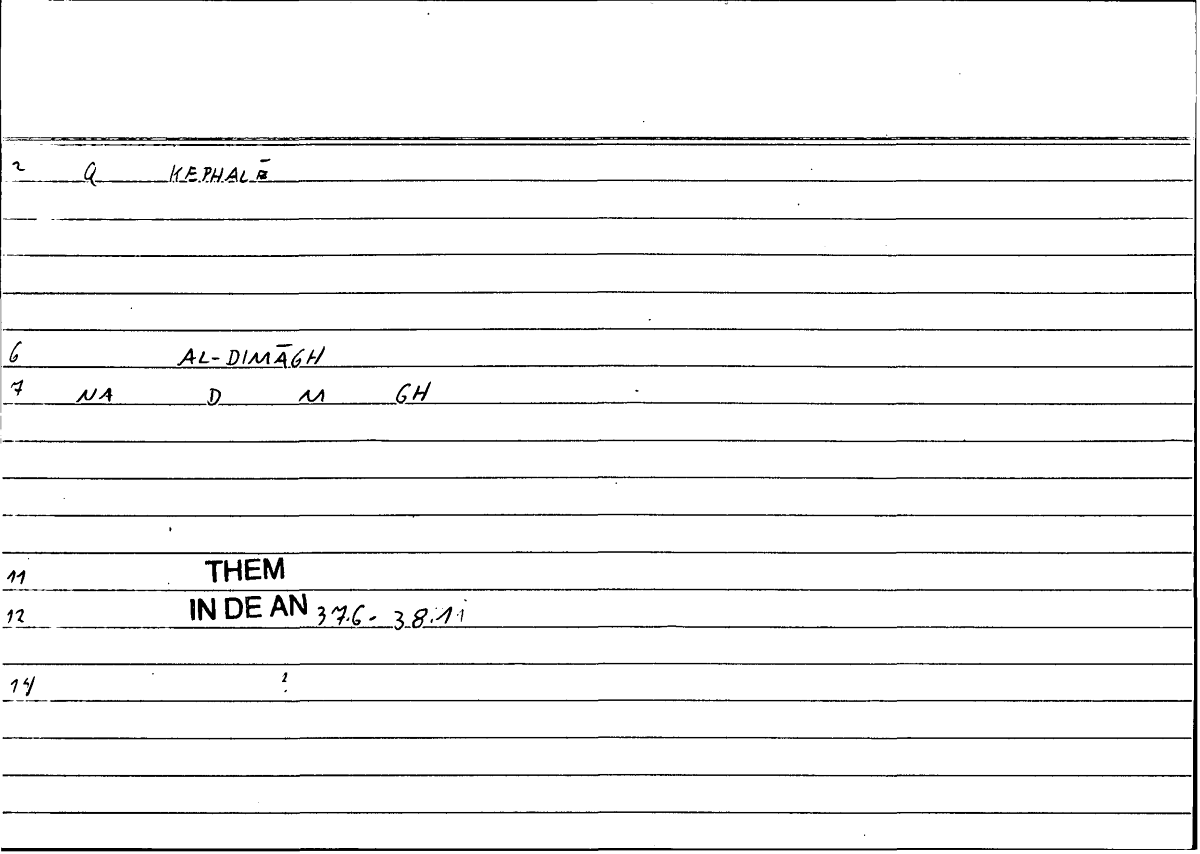 2 Q KEPHALĒ
6 AL-DIMĀGH
7 NA D M GH
11 THEM
12 IN DE AN 37.6- 38.11
14